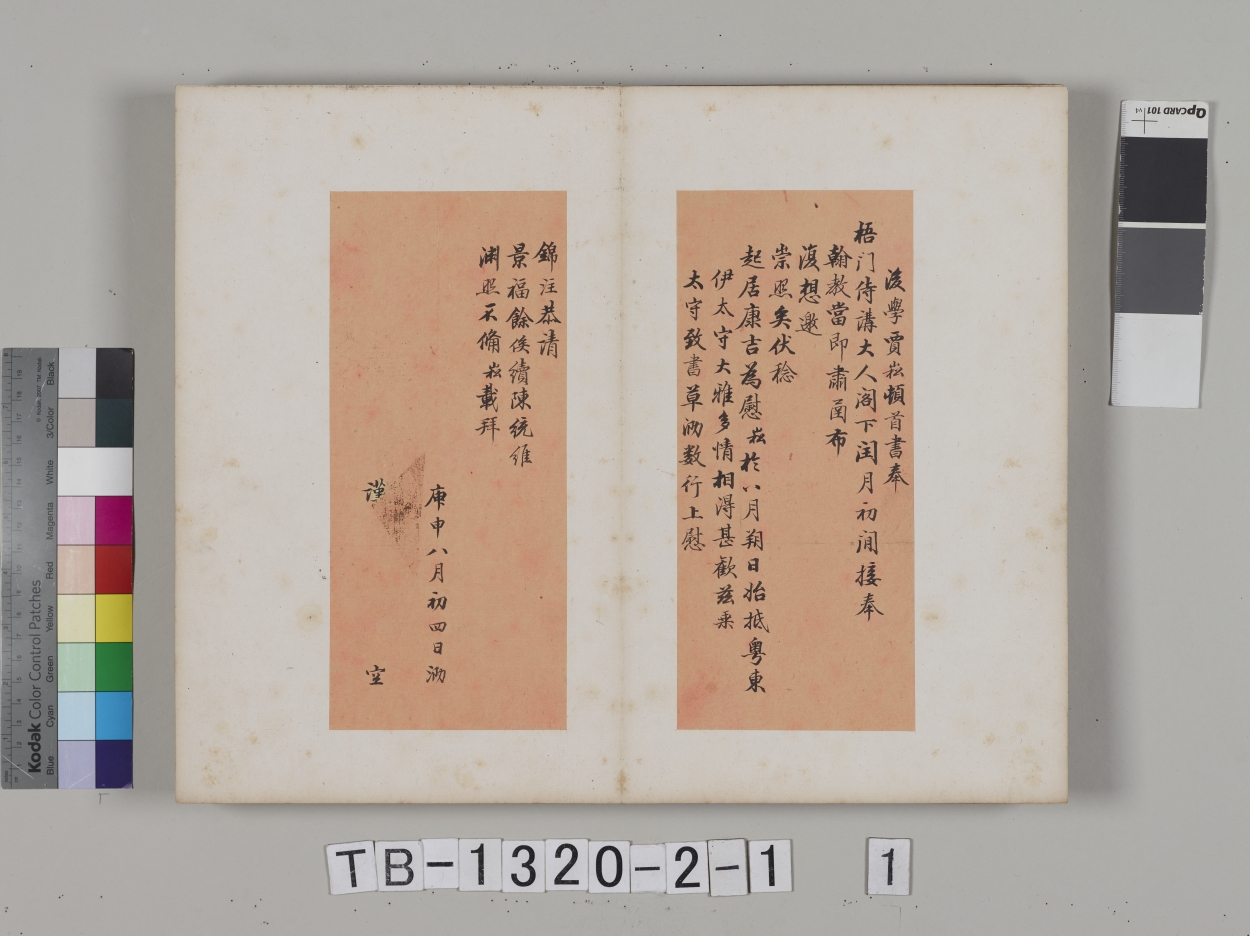 後學賈崧頓首書奉
梧门侍講大人阁下闰月初间接奉
翰教當即肅函布
復想邀
崇照矣伏稔
起居康吉為慰崧於八月朔日始抵粤東
伊太守大雅多情相得甚歡兹乘
太守致書草泐数行上慰
錦注恭請
景福餘俟續陳統維
渊照不備崧載拜
庚申八月初四日泐
謹
空
TB-1320-2-1 1
QPCARD 101 v4
Kodak Color Control Patches
Blue Cyan Green Yellow Red Magenta White 3/Color Black